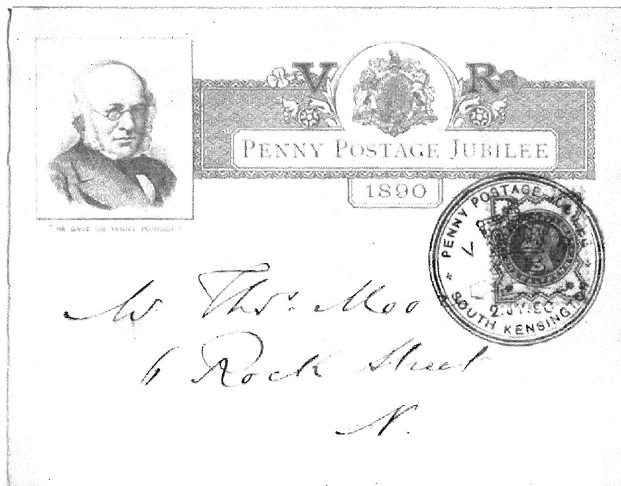 V R
PENNY POSTAGE JUBILEE
1890
"HE GAVE US PENNY POSTAGE."
PENNY POSTAGE JUBILEE
SOUTH KENSING
Mr. Thos. Moo
6 Rock Street
N.